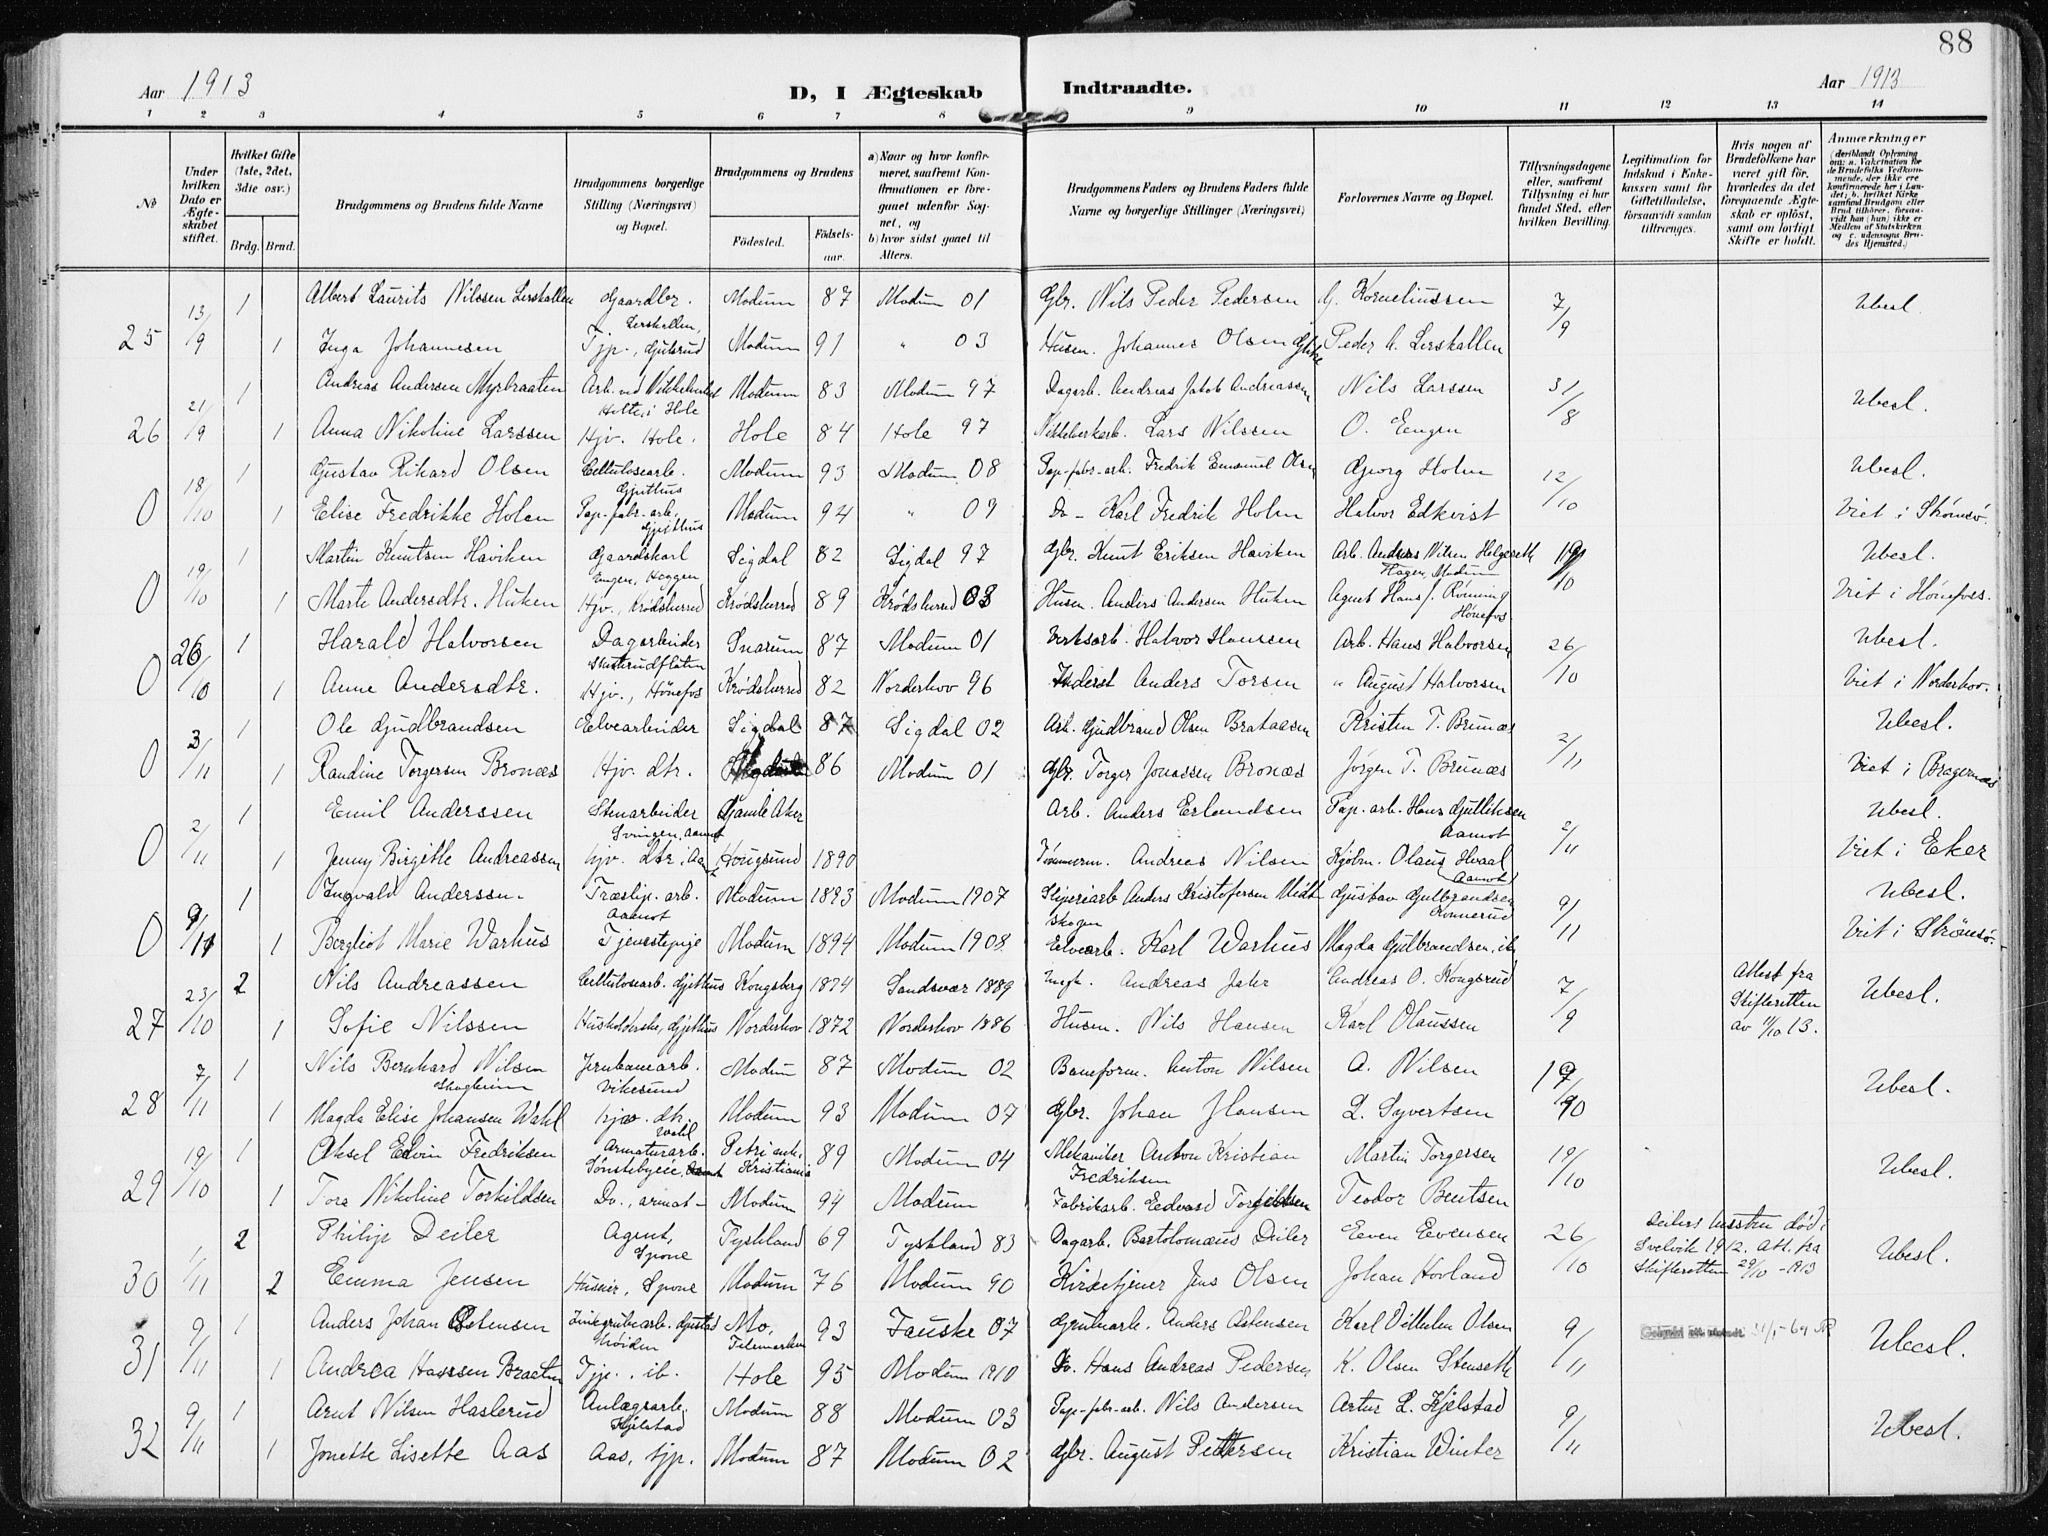 88
Aar 1913
D, I Ægteskab Indtraadte.
Aar 1913
1 2 3 4 5 6 7 8 9 10 11 12 13 14
№
Under hvilken Dato er Ægteskabet stiftet.
Hvilket Gifte (1ste, 2det, 3die osv.)
Brdg. Brud.
Brudgommens og Brudens fulde Navne
Brudgommens borgerlige Stilling (Næringsvei) og Bopæl.
Brudgommens og Brudens
Fødested. Fødselsaar.
a) Naar og hvor konfirmeret, saafremt Konfirmationen er foregaaet udenfor Sognet, og
b) hvor sidst gaaet til Alters.
Brudgommens Faders og Brudens Faders fulde Navne og borgerlige Stillinger (Næringsvei)
Forlovernes Navne og Bopæl.
Tillysningsdagene eller, saafremt Tillysning ei har fundet Sted, efter hvilken Bevilling.
Legitimation for Indskud i Enkekassen samt for Giftetilladelse, forsaavidt saadan tiltrænges.
Hvis nogen af Brudefolkene har været gift før, hvorledes da det foregaaende Ægteskab er opløst, samt om lovligt Skifte er holdt.
Anmærkninger (deriblandt Oplysning om: a. Vakcination for de Brudefolks Vedkommende, der ikke ere konfirmerede her i Landet; b. hvilket Kirkesamfund Brudgom eller Brud tilhører, forsaavidt han (hun) ikke er Medlem af Statskirken og c. udensogns Brudes Hjemsted.)
25 13/9 1 Albert Laurits Nilssen Lerskallen Gaardbr. Lerskallen, Modum 87 Modum 01 Gbr. Nils Peder Pedersen G. Korneliussen 7/9 Ubesl.
1 Inga Johannesen Tjp., Gulsrud Modum 91 " 03 Husm. Johannes Olsen Peder A. Lerskallen
26 21/9 1 Andreas Andersen Myrbraaten Arb. ved Nikkelverket Holte, i Hole Modum 83 Modum 97 Dagarb. Andreas Jakob Andreassen Nils Larssen 31/8 Ubesl.
1 Anna Nikoline Larssen Hjv. Hole. Hole 84 Hole 97 Nikkelverkarb. Lars Nilssen O. Engen
0 18/10 1 Gustav Rikard Olsen Cellulosearb. Gjethus Modum 93 Modum 08 Pap-fabr-arb. Fredrik Emanuel Olsen Georg Holm 12/10 Ubesl.
1 Elise Fredrikke Holm Pap-fabr-arb, Gjethus Modum 94 " 09 Do - Karl Fredrik Holm Halvor Edkvist Viet i Strømsö.
0 19/10 1 Martin Knutsen Haviken Gaardskarl Engen, Heggen Sigdal 82 Sigdal 97 Gbr. Knut Eriksen Haviken Arb. Anders Nilsen Helgeseth Hagen, Modum 19/10 Ubesl.
1 Marte Andersdtr. Huken Hjv., Krødsherred Krødsherred 89 Krødsherred 03 Husm. Anders Andersen Huken Agent Hans J. Rönning Hønefos. Viet i Hønefoss.
0 26/10 1 Harald Halvorsen Dagarbeider Snarum 87 Modum 01 Verksarb. Halvor Hanssen Arb. Hans Halvorsen 26/10 Ubesl.
1 Anne Andersdtr. Hjv., Hönefos Krødsherred 82 Norderhov 96 Inderst Anders Torsen " August Halvorsen Viet i Norderhov.
0 3/11 1 Ole Gudbrandsen Elvearbeider Sigdal 87 Sigdal 02 Arb. Gudbrand Olsen Brataasen Kristen T. Brunæs 2/11 Ubesl.
1 Randine Torgersen Bronæs Hjv. dtr. 86 Modum 01 Gbr. Torger Jonassen Bronæs Jörgen T. Brunæs Viet i Bragernæs
0 2/11 1 Emil Anderssen Stenarbeider Svingen, Aamot Gamle Aker Arb. Anders Erlandsen Pap. arb. Hans Gulliksen Aamot 2/11 Ubesl.
1 Jenny Birgitte Andreassen hjv. dtr. i Aamot Hougsund 1890 Tömmerm. Andreas Nilsen Kjøbm. Olaus Hvaal (Aamot) Viet i Eker
0 9/11 1 Ingvald Anderssen. Træslip. arb. Aamot Modum 1893 Modum 1907 Sliperiarb Anders Kristofersen Midtskogen Gustav Gulbrandsen Ronnerud 9/11 Ubesl.
1 Bergliot Marie Warhus Tjenestepige Modum 1894 Modum 1908 Elvearb. Karl Warhus Magda Gulbrandsen, ib Viet i Strömsö.
27 23/10 2 Nils Andreassen Cellulosearb. Gjethus Kongsberg 1874 Sandsvær 1889 Andreas Jahr Andreas O. Kongsrud 7/9 Attest fra Skifteretten av 11/10 13. Ubesl.
1 Sofie Nilssen Husholderske, Gjethus Norderhov 1872 Norderhov 1886 Husm. Nils Hansen Karl Olaussen
28 7/11 1 Nils Bernhard Nilsen Skogheim Jernbanearb. Vikesund Modum 87 Modum 02 Baneform. Anton Nilsen A. Nilsen 19/10 Ubesl.
1 Magda Elise Johansen Wahl hjv. dtr. Wahl Modum 93 Modum 07 Gbr. Johan Hansen L. Syvertsen
29 19/10 1 Aksel Edvin Fredriksen Armaturarb. Sønstebyeie, Aamot Petri mk. Kristiania 89 Modum 04 Mekaniker Anton Kristian Fredriksen Martin Torgersen 19/10 Ubesl.
1 Tora Nikoline Torkildsen Do., armat- Modum 94 Modum Fabrikarb. Edvard Torgildsen Teodor Bentsen
30 1/11 2 Philip Deiler Agent, Spone Tyskland 69 Tyskland 83 Dagarb. Bartolomæus Deiler Even Evensen 26/10 Deilers hustru død i Svelvik 1912. Att. fra Skifteretten 29/10 - 1913 Ubesl.
2 Emma Jensen Huseier, Spone Modum 76 Modum 90 Kirketjener Jens Olsen Johan Hovland
31 9/11 1 Anders Johan Östensen Zinkgrubearb. Gustad Möiden Mo, Telemarken 93 Fauske 07 Grubearb. Anders Østensen Karl Vilhelm Olsen 9/11 31/1-64 Ubesl.
1 Andrea Hanssen Braaten Tjp., ib. Hole 95 Modum 1910 Do. Hans Andreas Pedersen K. Olsen Stenseth
32 9/11 1 Arnt Nilsen Haslerud Anlægsarb. Kjølstad Modum 88 Modum 03 Pap-fabr-arb. Nils Andersen Artur L. Kjølstad 9/11 Ubesl.
1 Jonette Lisette Aas Aas, tjp. Modum 87 Modum 02 Gbr. August Pettersen Kristian Winter